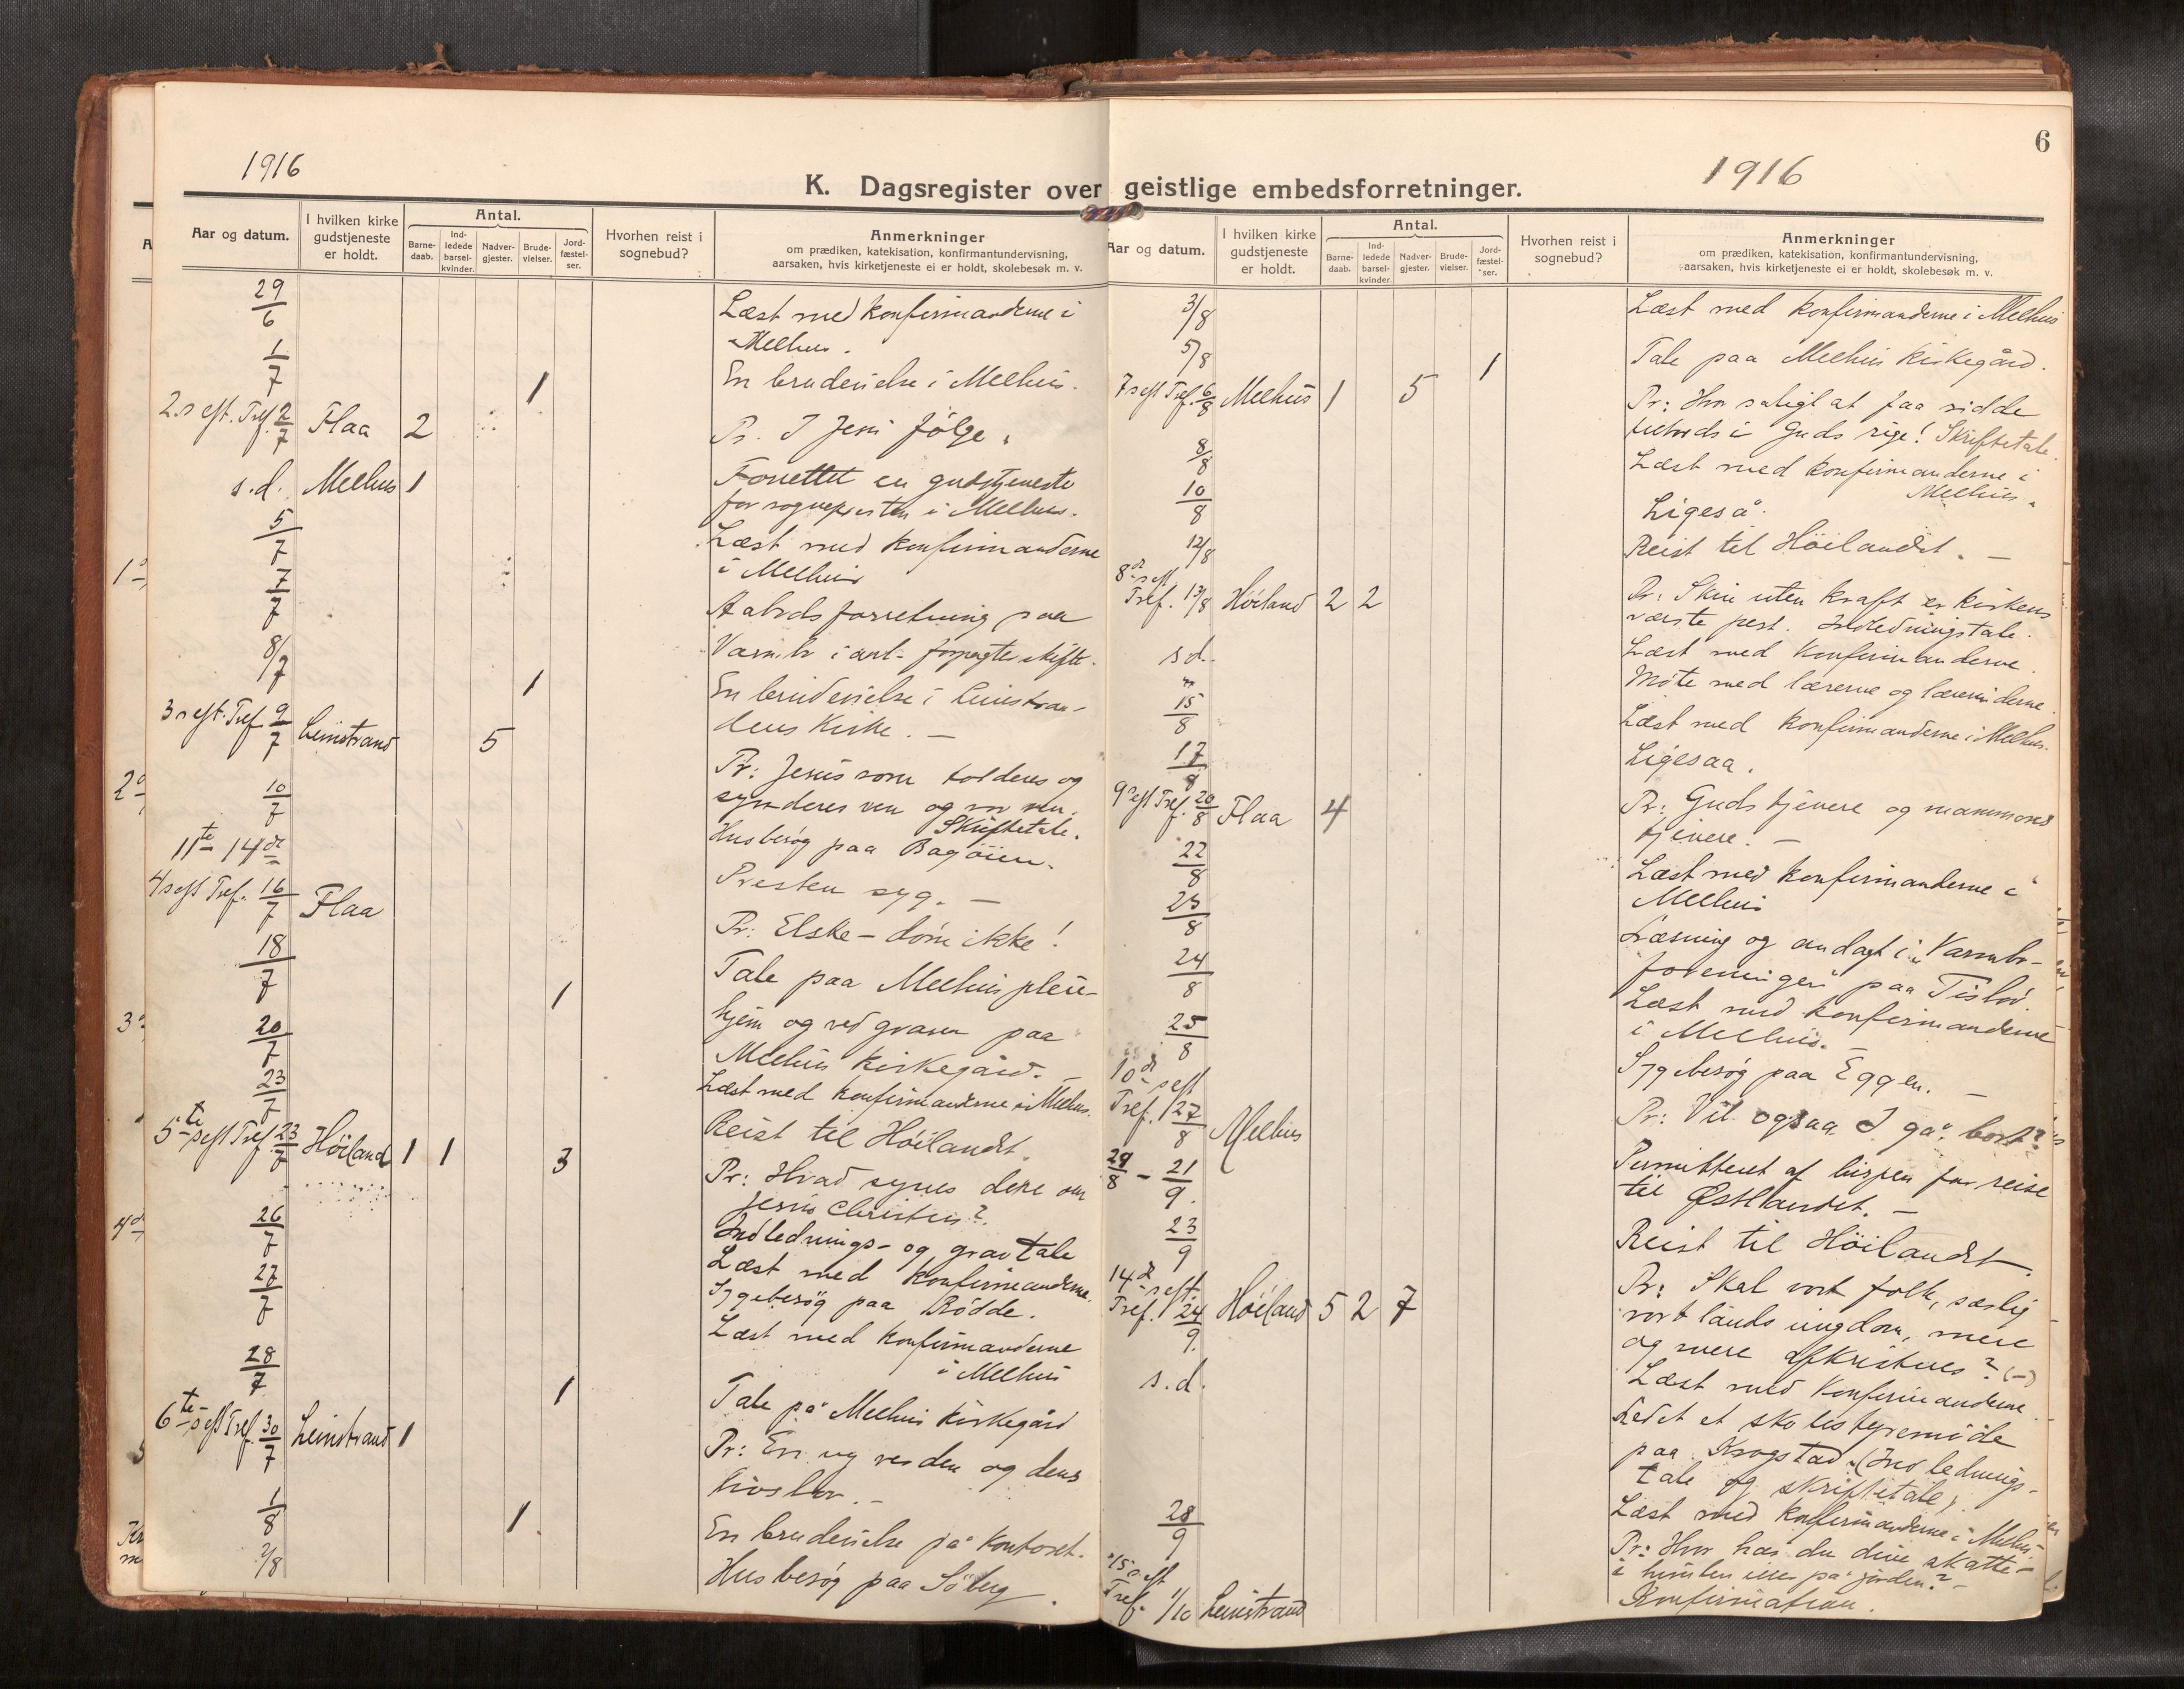 1916
K. Dagsregister over geistlige embedsforretninger.
1916
6
Aar og datum.
I hvilken kirke gudstjeneste er holdt.
Antal.
Barne-daab.
Ind-ledede barsel-kvinder.
Nadver-gjester.
Brude-vielser.
Jord-fæstel-ser.
Hvorhen reist i sognebud?
Anmerkninger
om prædiken, katekisation, konfirmantundervisning,
aarsaken, hvis kirketjeneste ei er holdt, skolebesøk m. v.
29/6 Læst med konfirmanderne i
Melhus.
1/7 1 En brudevielse i Melhus.
2 s eft. Tref. 2/7 Flaa 2 Pr. I Jesu følge.
s.d. Melhus 1 Forrettet en gudstjeneste
for sognepresten i Melhus.
5/7 Læst med konfirmanderne
i Melhus
7/7 Aabodsforretning paa
8/7 1 En brudevielse i Leinstran-
dens Kirke. —
3 s eft. Tref. 9/7 Leinstrand 5 Pr: Jesus som tolderes og
synderes ven og vor ven.
Skriftetale.
10/7 Husbesøg paa Bagøien.
11te - 14de Presten syg. —
4 s eft Tref. 16/7 Flaa Pr: Elske — døm ikke!
18/7 1 Tale paa Melhus pleie-
hjem og ved graven paa
Melhus Kirkegård. —
20/7 Læst med konfirmanderne i Melhus.
23/7 Reist til Höilandet.
5te s eft Tref. 23/7 Höiland 1 1 3 Pr: Hvad synes dere om
Jesus Christus?
Indlednings- og gravtale
Læst med konfirmanderne.
26/7 Sygebesøg paa Rødde.
27/7 Læst med konfirmanderne
i Melhus
28/7 1 Tale på Melhus kirkegård
6te s eft Tref. 30/7 Leinstrand 1 Pr: En ny verden og dens
livslov. —
1/8 1. En brudevielse på kontoret.
2/8 Husbesøg paa Söberg.
Aar og datum.
I hvilken kirke gudstjeneste er holdt.
Antal.
Barne-daab.
Ind-ledede barsel-kvinder.
Nadver-gjester.
Brude-vielser.
Jord-fæstel-ser.
Hvorhen reist i sognebud?
Anmerkninger
om prædiken, katekisation, konfirmantundervisning,
aarsaken, hvis kirketjeneste ei er holdt, skolebesøk m. v.
3/8 Læst med konfirmanderne i Melhus
5/8 1 Tale paa Melhus Kirkegård.
7 s eft Tref. 6/8 Melhus 1 5 Pr: Hvor saligt at faa sidde
tilbords i Guds rige! Skriftetale.
8/8 Læst med konfirmanderne i
Melhus.
10/8 Ligeså.
12/8 Reist til Höilandet. —
8de s eft
Tref. 13/8 Höiland 2 2 Pr: Skin uten kraft er kirkens
værste pest. Indledningstale.
s.d. Læst med konfirmanderne.
" Møte med lærerne og lærerinderne.
15/8 Læst med konfirmanderne i Melhus.
17/8 Ligesaa.
9 s eft Tref. 20/8 Flaa 4 Pr: Guds tjenere og mammons
tjenere. —
22/8 Læst med konfirmanderne i
Melhus
23/8 Læsning og andagt i
foreningen paa
24/8 Læst med konfirmanderne
i Melhus.
25/8 Sygebesøg paa Eggen. —
10de s eft
Tref. 27/8 Melhus Pr: Vil ogsaa I gå bort?
28/8 - 21/9. Permitteret af bispen for reise
til Østlandet. —
23/9 Reist til Höilandet.
14de s eft.
Tref. 24/9. Höiland 5 2 7 Pr: Skal vort folk, særlig
vort lands ungdom, mere
og mere afkristnes? (—)
s.d. Læst med konfirmanderne.
Ledet et skolestyremöde
paa Krogstad. (Indlednings-
tale og skriftetale).
28/9 Læst med konfirmanderne i Melhus
15 s eft
Tref. 1/10 Leinstrand Pr: Hvor har du dine skatte —
i himlen eller på jorden? —
Konfirmation.